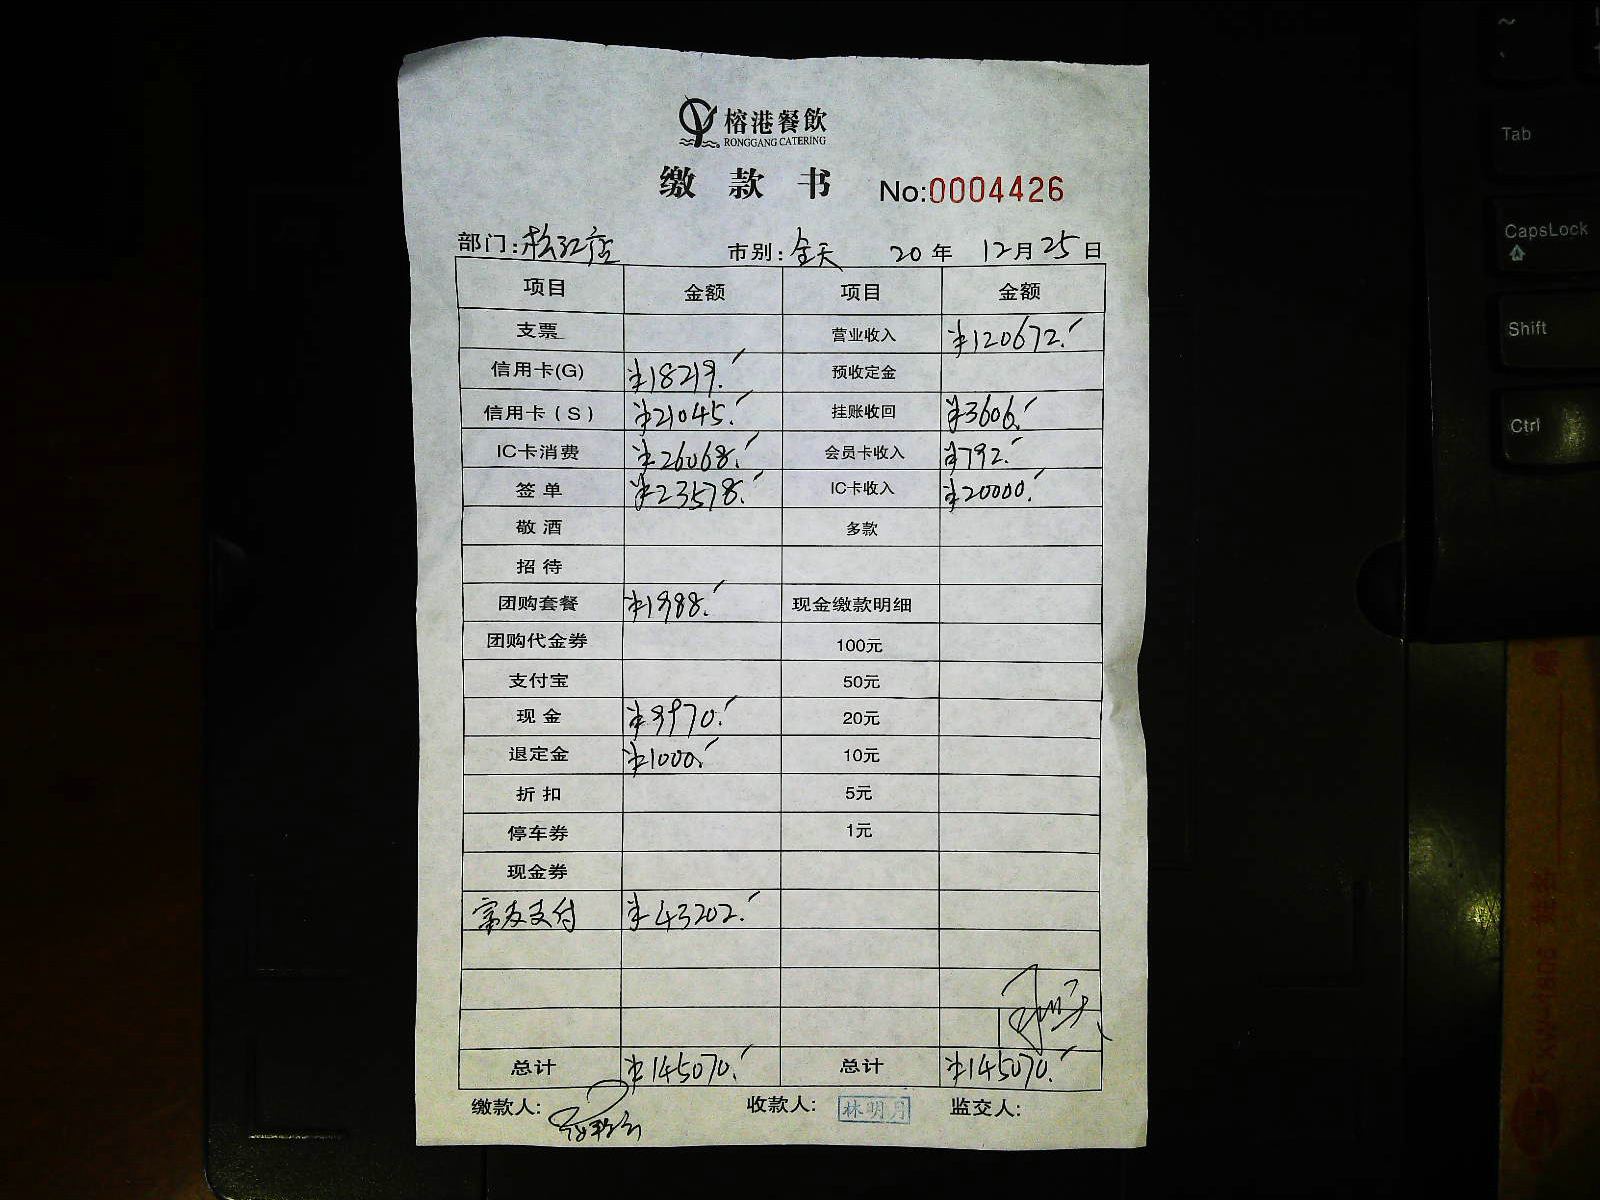 榕港餐飲
RONGGANG CATERING
缴款书 No:0004426
部门:松江店 市别:全天 20 年 12月25日
项目 金额 项目 金额
支票 营业收入 ¥120672.
信用卡(G) ¥18219. 预收定金
信用卡(S) ¥21045. 挂账收回 ¥3606.
IC卡消费 ¥26068. 会员卡收入 ¥792.
签单 ¥23578. IC卡收入 ¥20000.
敬酒 多款
招待
团购套餐 ¥1988. 现金缴款明细
团购代金券 100元
支付宝 50元
现金 ¥9970. 20元
退定金 ¥1000. 10元
折扣 5元
停车券 1元
现金券
富友支付 ¥43202.
总计 ¥145070. 总计 ¥145070.
缴款人: 收款人: 林明月 监交人:
Tab
CapsLock
Shift
Ctrl